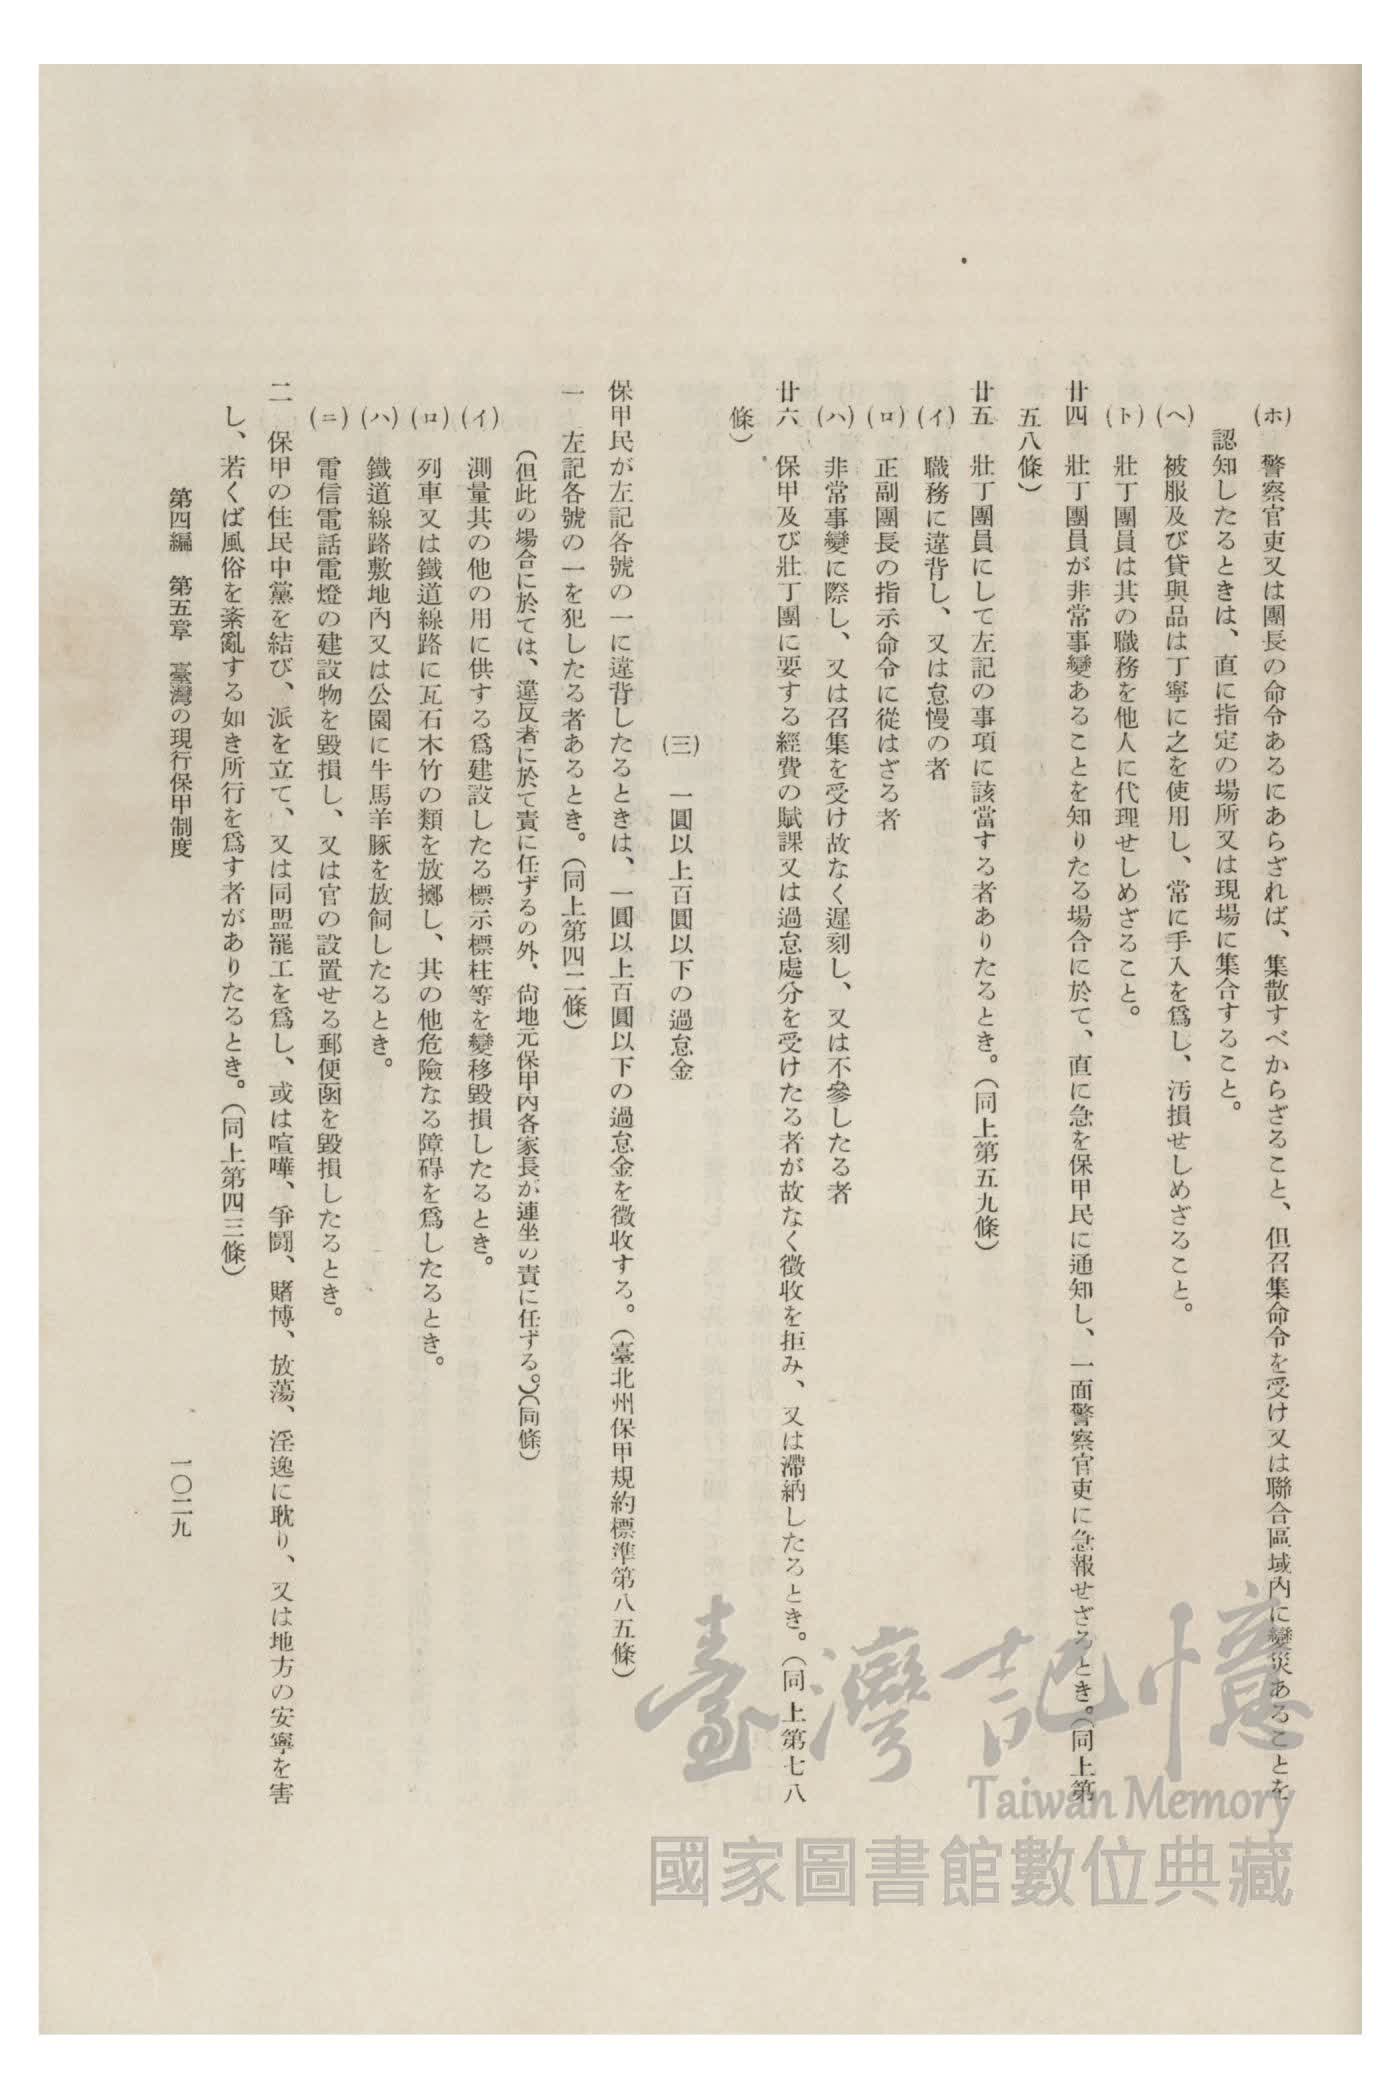 (ホ) 警察官吏又は團長の命令あるにあらざれば、集散すべからざること、但召集命令を受け又は聯合區域內に變災あることを
認知したるときは、直に指定の場所又は現場に集合すること。
(ヘ) 被服及び貸與品は丁寧に之を使用し、常に手入を爲し、汚損せしめざること。
(ト) 壯丁團員は其の職務を他人に代理せしめざること。
廿四 壯丁團員が非常事變あることを知りたる場合に於て、直に急を保甲民に通知し、一面警察官吏に急報せざるとき。(同上第
五八條)
廿五 壯丁團員にして左記の事項に該當する者ありたるとき。(同上第五九條)
(イ) 職務に違背し、又は怠慢の者
(ロ) 正副團長の指示命令に從はざる者
(ハ) 非常事變に際し、又は召集を受け故なく遲刻し、又は不參したる者
廿六 保甲及び壯丁團に要する經費の賦課又は過怠處分を受けたる者が故なく徵收を拒み、又は滯納したるとき。(同上第七八
條)
(三) 一圓以上百圓以下の過怠金
保甲民が左記各號の一に違背したるときは、一圓以上百圓以下の過怠金を徵收する。(臺北州保甲規約標準第八五條)
一 左記各號の一を犯したる者あるとき。(同上第四二條)
(但此の場合に於ては、違反者に於て責に任ずるの外、尙地元保甲內各家長が連坐の責に任ずる。)(同條)
(イ) 測量其の他の用に供する爲建設したる標示標柱等を變移毀損したるとき。
(ロ) 列車又は鐵道線路に瓦石木竹の類を放擲し、其の他危險なる障碍を爲したるとき。
(ハ) 鐵道線路敷地內又は公園に牛馬羊豚を放飼したるとき。
(ニ) 電信電話電燈の建設物を毀損し、又は官の設置せる郵便函を毀損したるとき。
二 保甲の住民中黨を結び、派を立て、又は同盟罷工を爲し、或は喧嘩、爭鬪、賭博、放蕩、淫逸に耽り、又は地方の安寧を害
し、若くば風俗を紊亂する如き所行を爲す者がありたるとき。(同上第四三條)
第四編 第五章 臺灣の現行保甲制度
一〇二九
臺灣記憶
Taiwan Memory
國家圖書館數位典藏